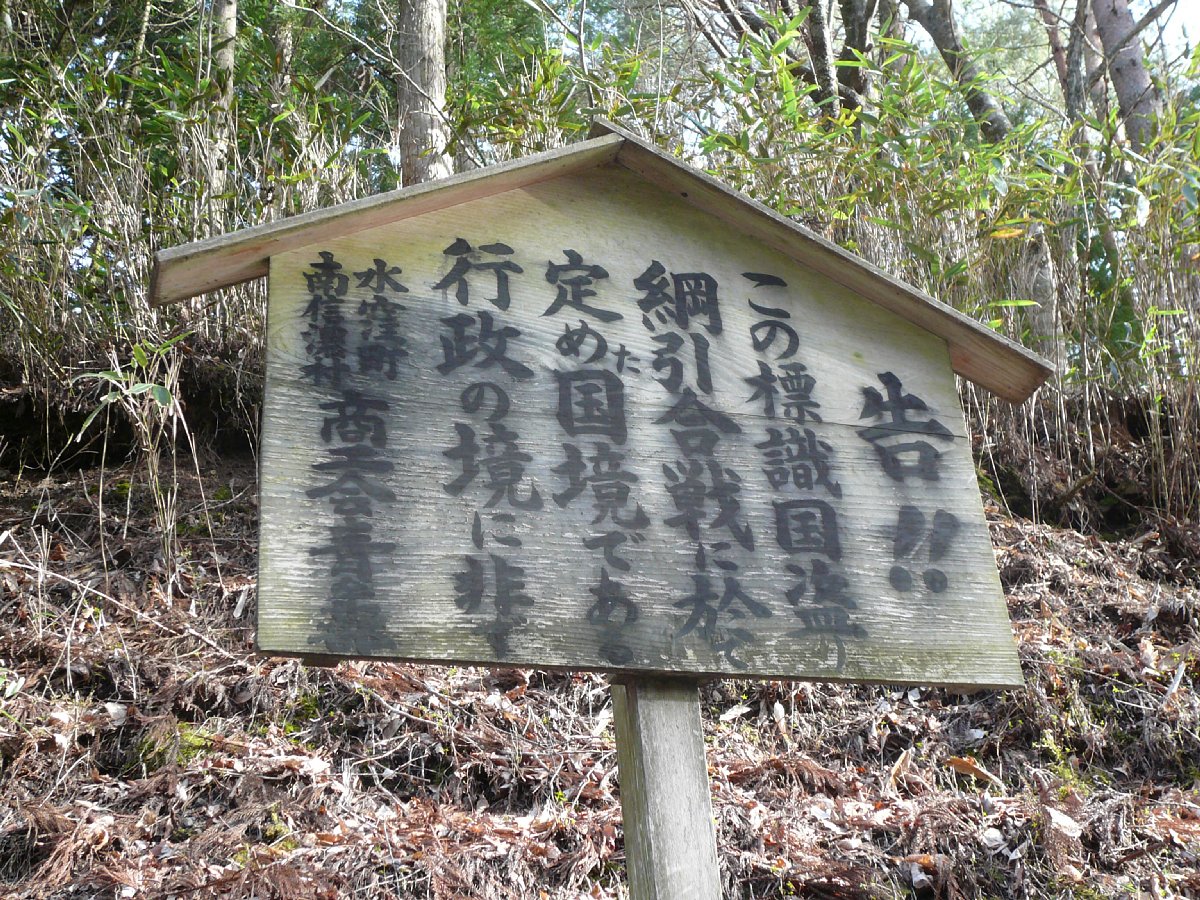 告!!
この標識国盗り
綱引合戦に於て
定めた国境である
行政の境に非ず
水窪町
南信濃村
商工会青年部